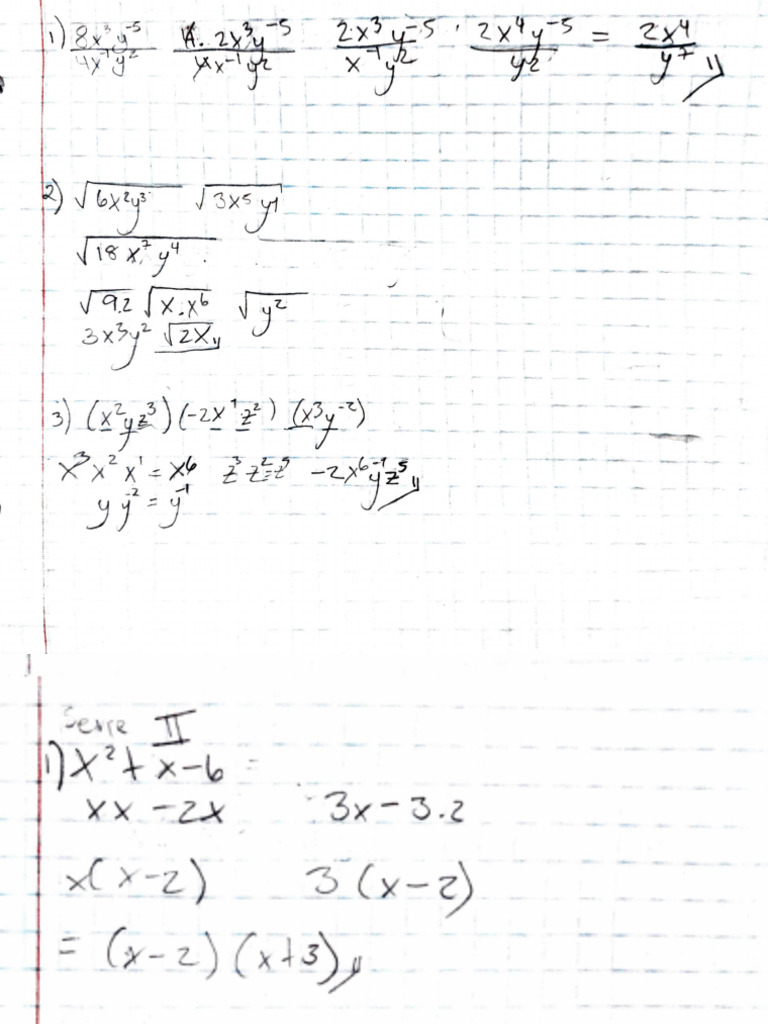 1) 8x³y⁻⁵/4x⁻¹y² 4·2x³y⁻⁵/4x⁻¹y² 2x³y⁻⁵/x⁻¹y² · 2x⁴y⁻⁵/y² = 2x⁴/y⁷
2) √6x²y³ √3x⁵y1
√18x⁷y⁴
√9.2 √x.x⁶ √y²
3x³y² √2x
3) (x²yz³)(-2x¹z²) (x³y⁻²)
x³x²x¹ = x⁶ z³z²=z⁵ -2x⁶y⁻¹z⁵
y y⁻² = y⁻¹
Serie II
1) x² + x - 6 =
xx - 2x 3x - 3.2
x(x-2) 3(x-2)
= (x-2)(x+3)